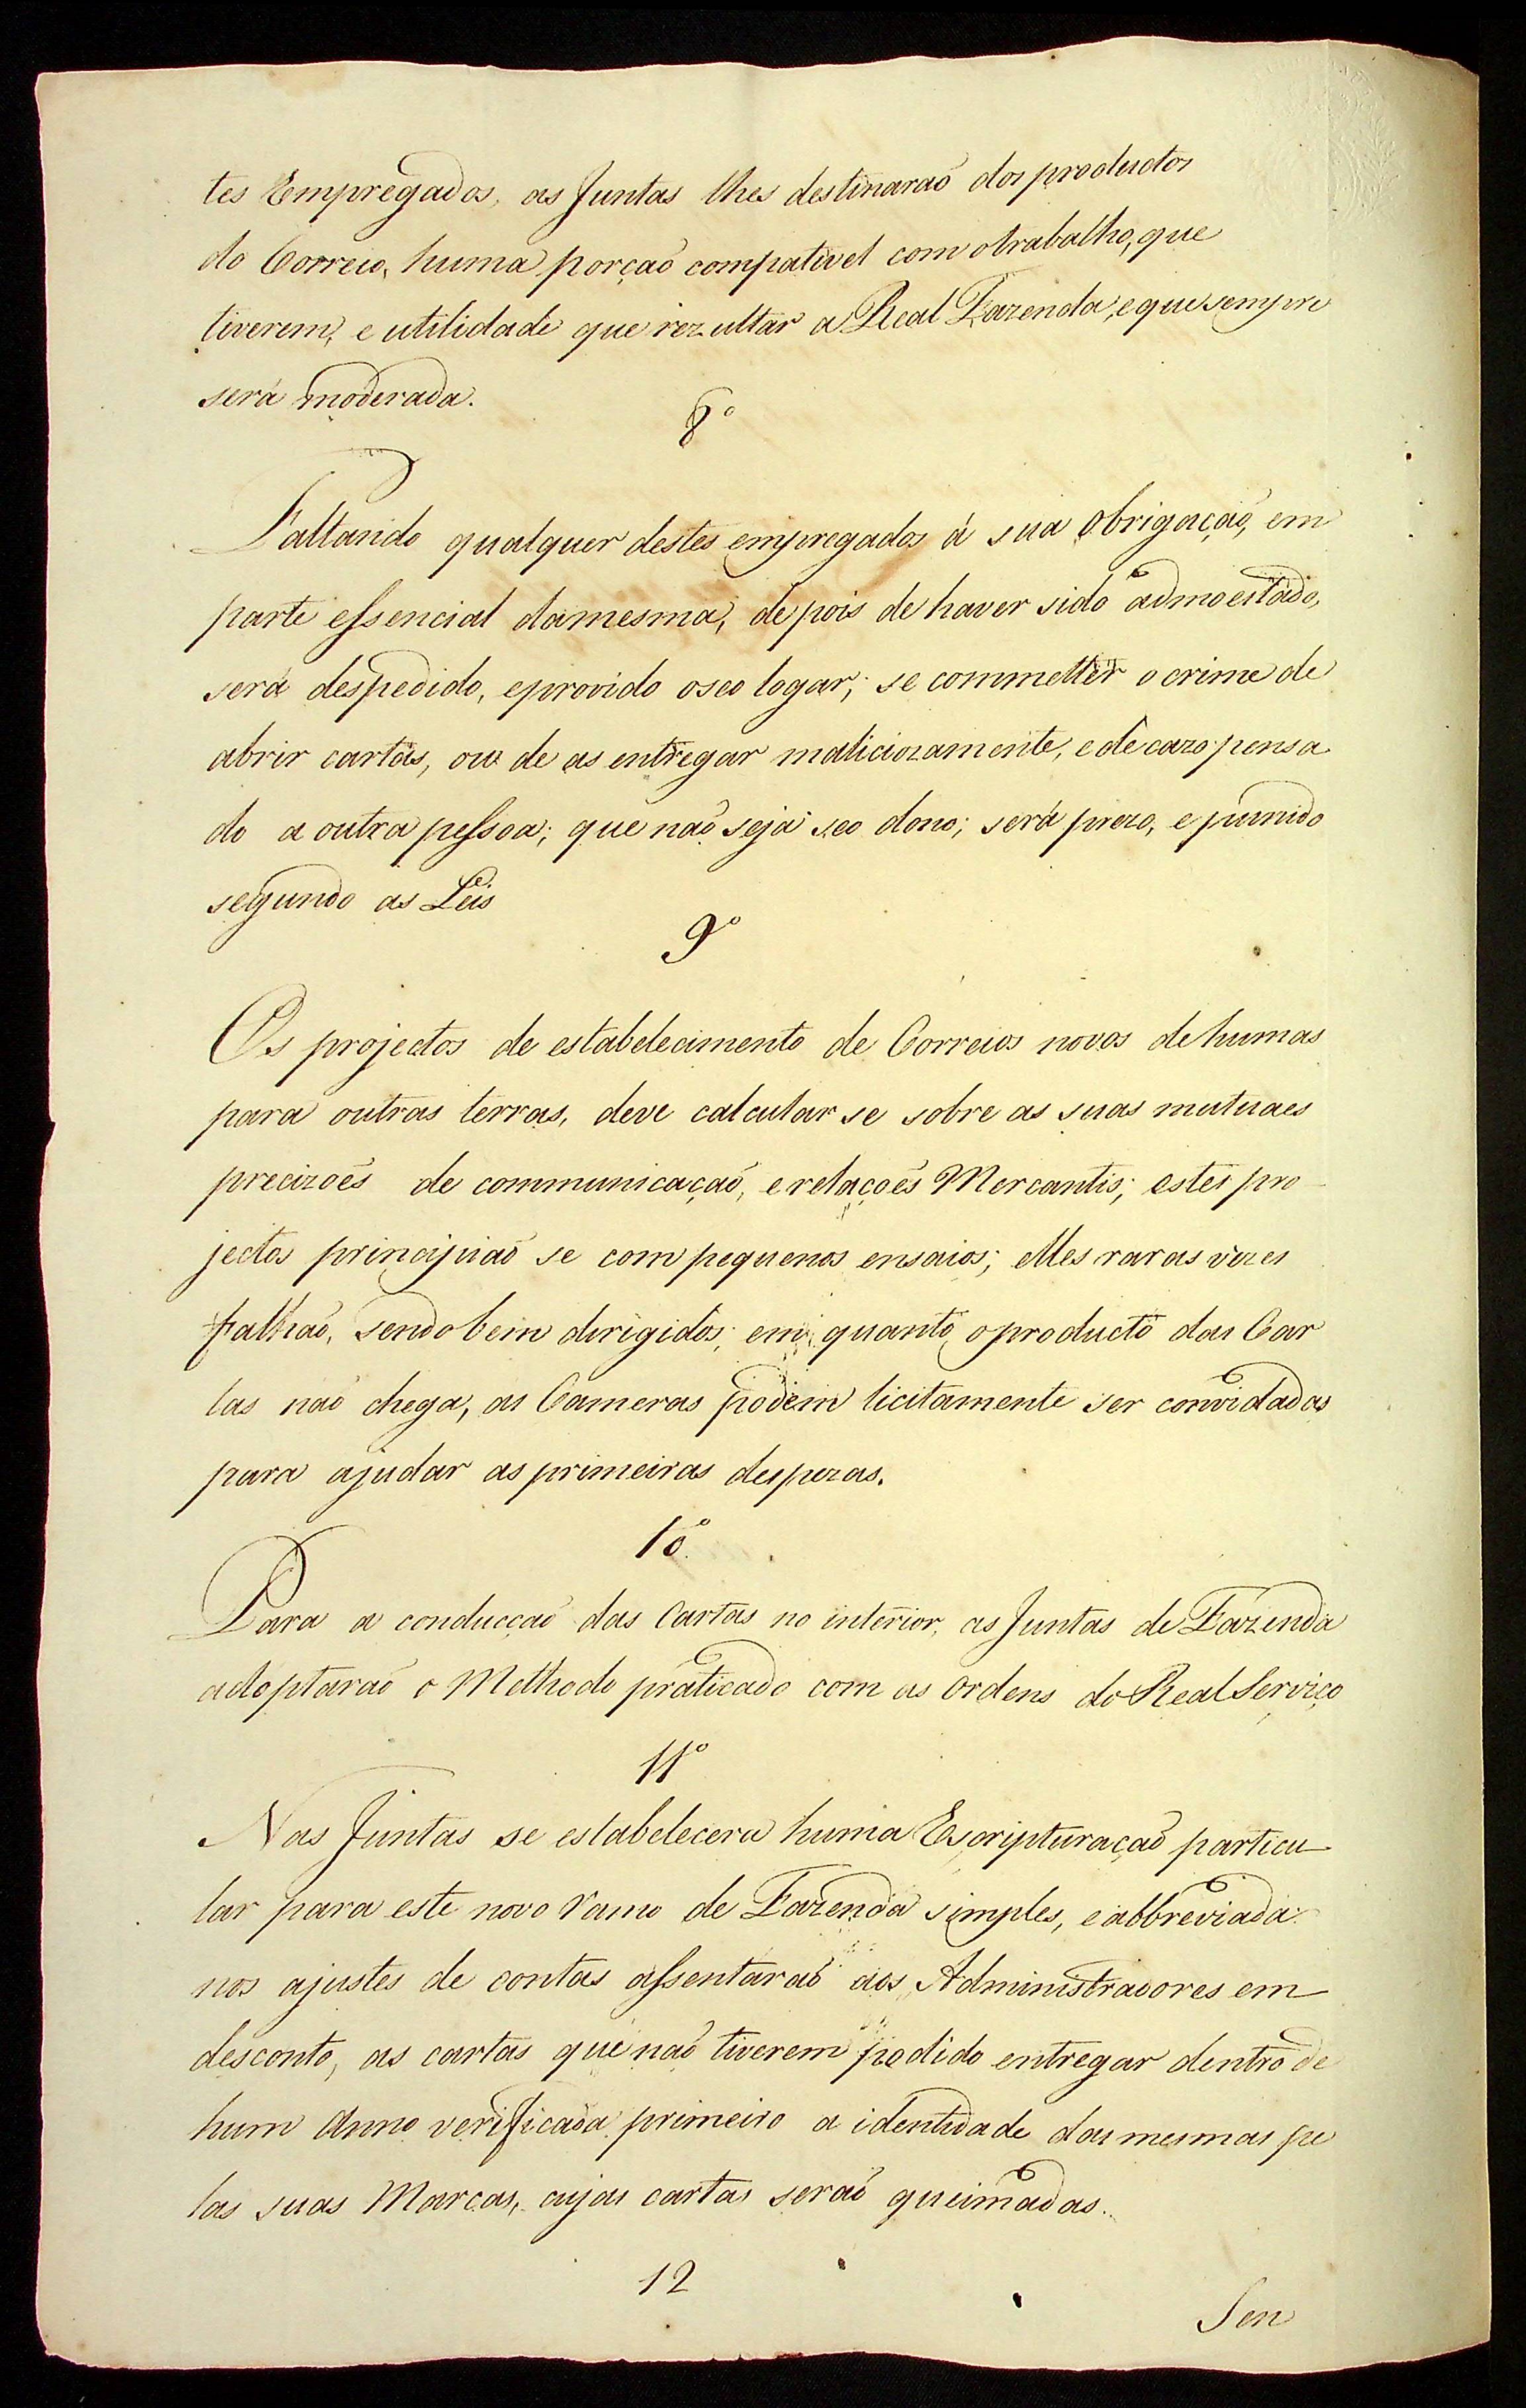 tes Empregados, as Juntas lhes destinaraõ dos productos
do Correio, huma porçaõ compativel com o trabalho, que
tiverem, e utilidade que rezultar a Real Fazenda, e que sempre
será moderada.
8º
Faltando qualquer destes empregados á sua obrigaçaõ, em
parte essencial da mesma, depois de haver sido admoestado,
será despedido, e provido o seo logar; se commetter o crime de
abrir cartas, ou de as entregar maliciozamente, e de cazo pensa
do a outra pessoa; que naõ seja seo dono; será prezo, e punido
segundo as Leis
9º
Os projectos de estabelecimento de Correios novos de humas
para outras terras, deve calcular se sobre as suas mutuaes
precizoẽs de communicaçaõ, e relaçoẽs Mercantis; estes pro-
jectos principiaõ se com pequenos ensaios; elles raras vezes
falhaõ, sendo bem dirigidos; em quanto o producto das Car
tas naõ chega, as Cameras podem licitamente ser convidadas
para ajudar as primeiras despezas.
10º
Para a conducçaõ das Cartas no interior, as Juntas de Fazenda
adoptaraõ o Methodo praticado com as Ordens do Real Serviço
11º
Nas Juntas se estabelecera huma Escripturaçaõ particu-
lar para este novo ramo de Fazenda simples, e abbreviada
nos ajustes de contas assentaraõ aos Administradores em
desconto, as cartas que naõ tiverem podido entregar dentro de
hum Anno verificada primeiro a identidade das mesmas pe
las suas Marcas, cujas cartas seraõ queimadas.
12
Sen